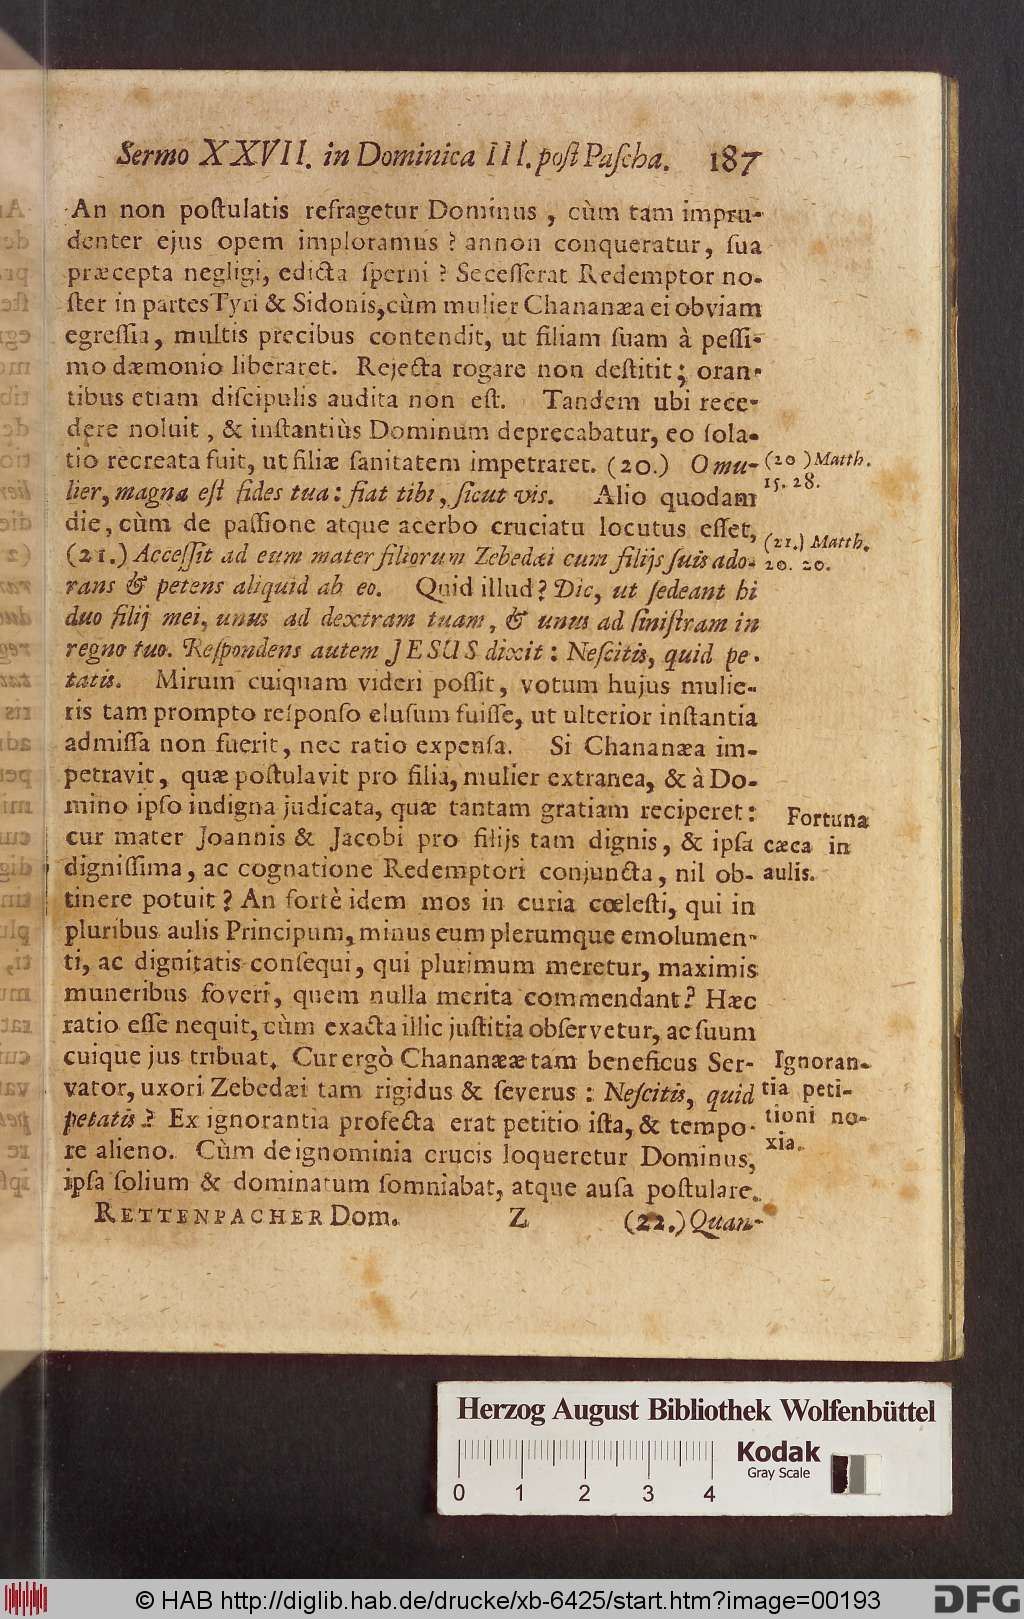 Sermo XXVII. in Dominica III. poſt Paſcha. 187
An non poſtulatis refragetur Dominus, cùm tam impru-
denter ejus opem imploramus? annon conqueratur, ſua
præcepta negligi, edicta ſperni? Seceſſerat Redemptor no-
ſter in partes Tyri & Sidonis, cùm mulier Chananæa ei obviam
egreſſia, multis precibus contendit, ut filiam ſuam à peſſi-
mo dæmonio liberaret. Rejecta rogare non deſtitit; oran-
tibus etiam diſcipulis audita non eſt. Tandem ubi rece-
dere noluit, & inſtantiùs Dominum deprecabatur, eo ſola-
tio recreata fuit, ut filiæ ſanitatem impetraret. (20.) O mu-
lier, magna eſt fides tua: fiat tibi, ſicut vis. Alio quodam
die, cùm de paſſione atque acerbo cruciatu locutus eſſet,
(21.) Acceſſit ad eum mater filiorum Zebedæi cum filijs ſuis ado-
rans & petens aliquid ab eo. Quid illud? Dic, ut ſedeant hi
duo filij mei, unus ad dextram tuam, & unus ad ſiniſtram in
regno tuo. Reſpondens autem JESUS dixit: Neſcitis, quid pe-
tatis. Mirum cuiquam videri poſſit, votum hujus mulie-
ris tam prompto reſponſo eluſum fuiſſe, ut ulterior inſtantia
admiſſa non fuerit, nec ratio expenſa. Si Chananæa im-
petravit, quæ poſtulavit pro filia, mulier extranea, & à Do-
mino ipſo indigna judicata, quæ tantam gratiam reciperet:
cur mater Joannis & Jacobi pro filijs tam dignis, & ipſa
digniſſima, ac cognatione Redemptori conjuncta, nil ob-
tinere potuit? An fortè idem mos in curia cœleſti, qui in
pluribus aulis Principum, minus eum plerumque emolumen-
ti, ac dignitatis conſequi, qui plurimum meretur, maximis
muneribus foveri, quem nulla merita commendant? Hæc
ratio eſſe nequit, cùm exacta illic juſtitia obſervetur, ac ſuum
cuique jus tribuat. Cur ergò Chananææ tam beneficus Ser-
vator, uxori Zebedæi tam rigidus & ſeverus: Neſcitis, quid
petatis? Ex ignorantia profecta erat petitio iſta, & tempo-
re alieno. Cùm de ignominia crucis loqueretur Dominus,
ipſa ſolium & dominatum ſomniabat, atque auſa poſtulare.
RETTENPACHER Dom. Z (22.) Quan-
(20) Matth.
15. 28.
(21.) Matth.
20. 20.
Fortuna
cæca in
aulis.
Ignoran-
tia peti-
tioni no-
xia.
Herzog August Bibliothek Wolfenbüttel
Kodak
Gray Scale
0 1 2 3 4
© HAB http://diglib.hab.de/drucke/xb-6425/start.htm?image=00193
DFG